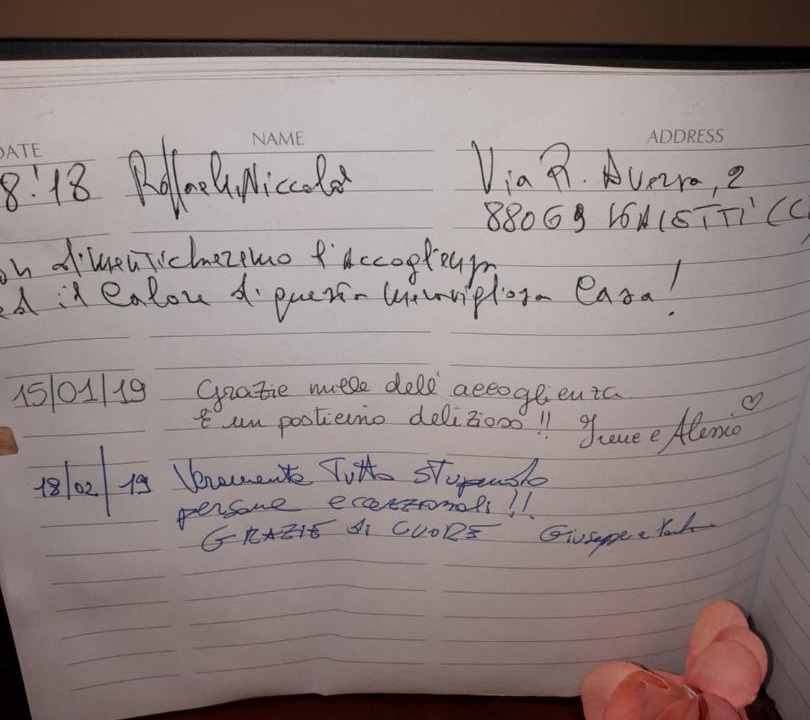 DATE NAME ADDRESS
8.'18 Raffaele, Niccolò Via R. Aversa, 2
88069
dimenticheremo l'Accoglienza
ed il Calore di questa meravigliosa Casa!
15/01/19 Grazie mille dell'accoglienza
È un posticino delizioso!! Irene e Alessio
18/02/19 Veramente Tutto stupendo
persone eccezzionali!!
GRAZIE di CUORE Giuseppe e